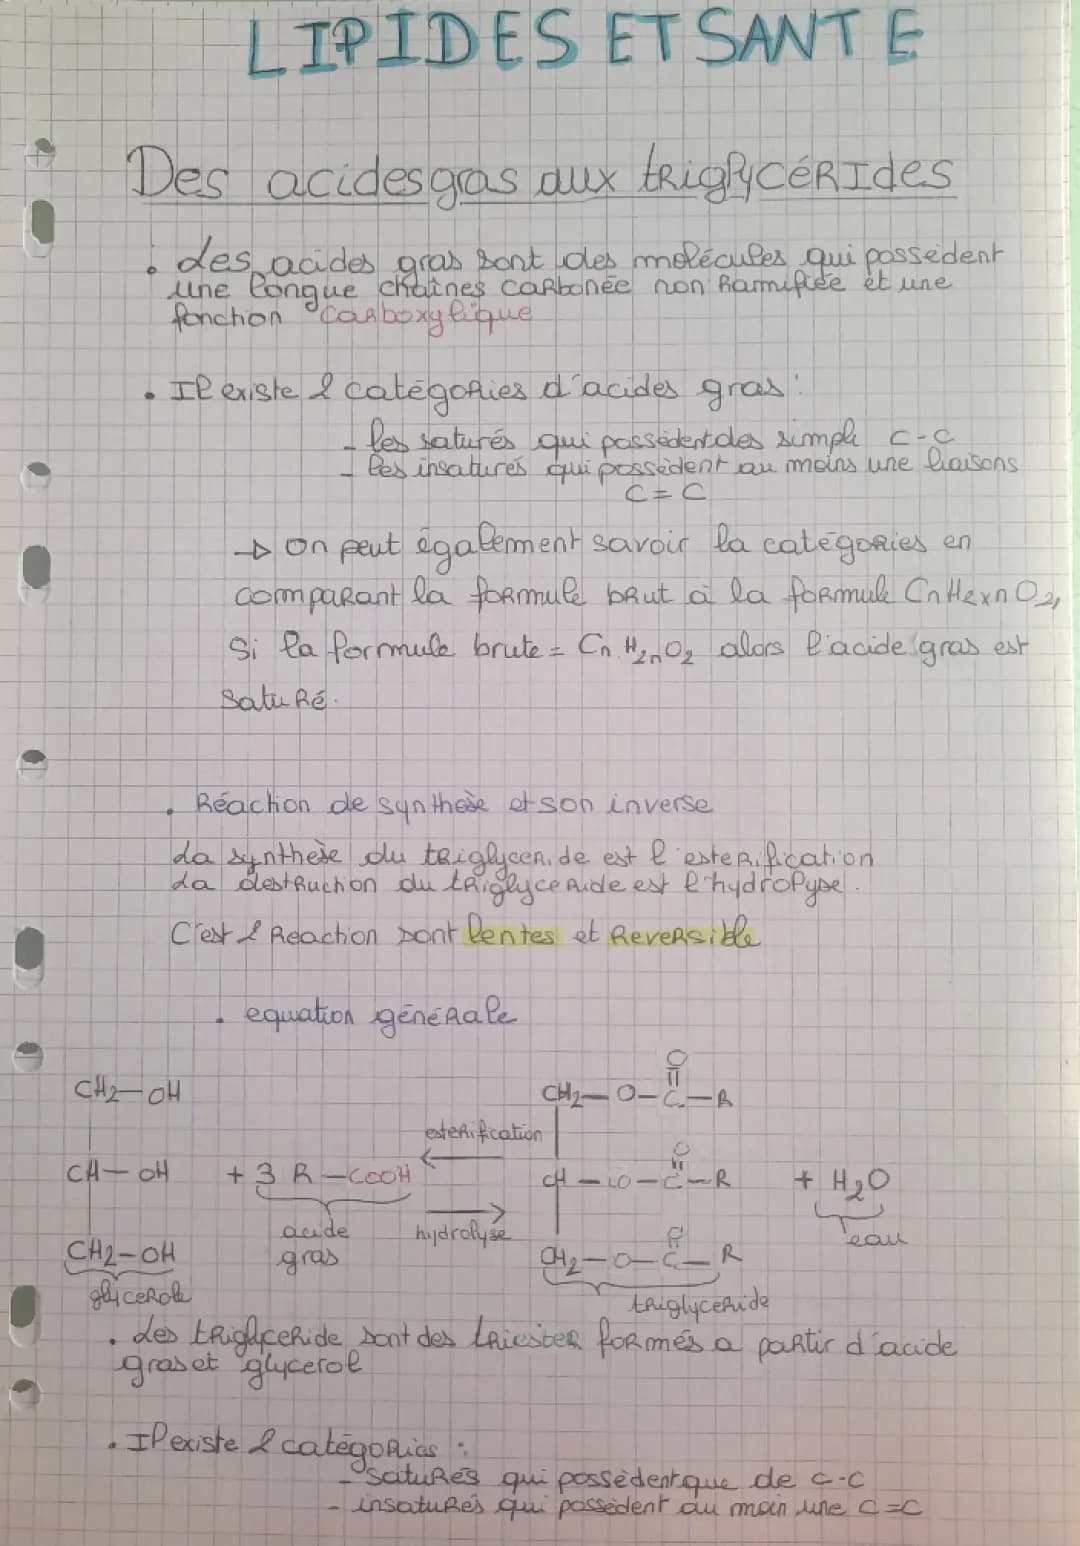 LIPIDES ET SANTE
Des acides gras aux triglycérides
. Les acides gras sont des molécules qui possèdent
une longue chaînes carbonée non Ramifiée et une
fonction carboxylique
. Il existe 2 catégories d'acides gras :
- les saturés qui possèdent des simple C-C
- les insaturés qui possèdent au moins une liaisons
C=C
→ on peut également savoir la catégories en
comparant la formule brut à la formule CnH2xnO2,
Si la formule brute = CnH2nO2 alors l'acide gras est
saturé.
. Réaction de synthèse et son inverse
La synthèse du triglyceride est l'esterification
La destruction du triglyceride est l'hydrolyse.
C'est 2 Reaction sont lentes et Reversible
. equation générale
CH2-OH
CH2-O-C-R
O
esterification
←
CH-OH
+ 3 R-COOH
CH-O-C-R
O
+ H2O
acide
gras
hydrolyse
→
eau
CH2-OH
CH2-O-C-R
O
glycerole
triglyceride
. Les triglyceride sont des triester formés a partir d'acide
gras et glycerol
. Il existe 2 catégories :
- saturés qui possèdent que de C-C
- insaturés qui possèdent au moin une C=C